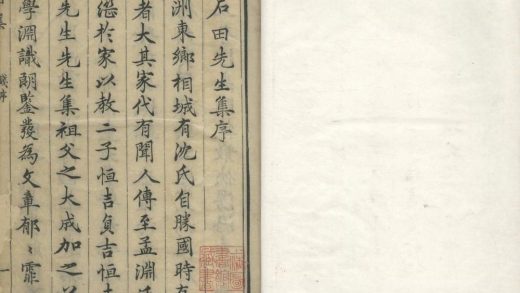 石田先生集序
洲東鄉相城有沈氏自勝國時有
者大其家代有聞人傳至孟淵
於家以教二子恒吉貞吉恒
先生先生集祖父之大成加之
學淵識朗鑒發為文章郁〻霏